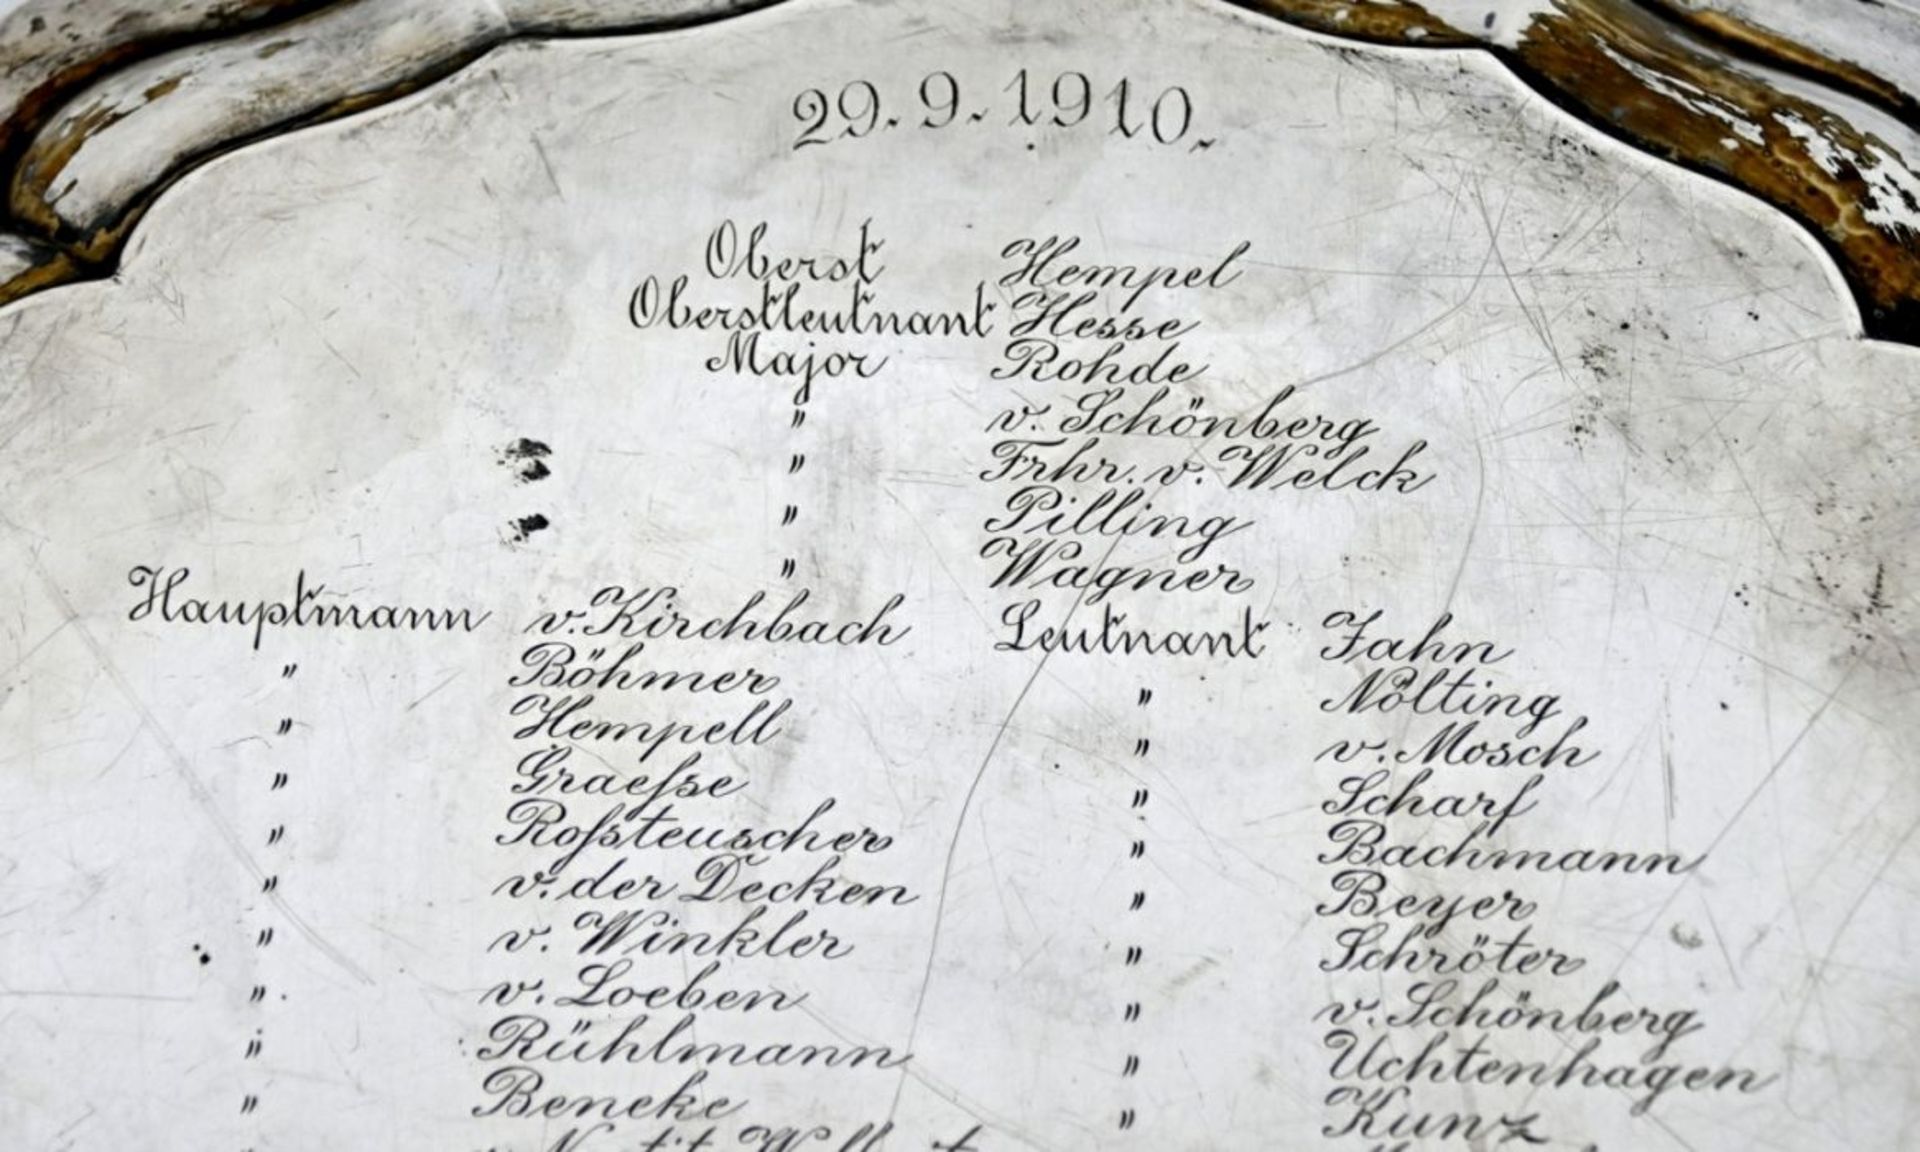 29. 9. 1910.
Oberst Hempel
Oberstleutnant Hesse
Major Rohde
" v. Schönberg
" Frhr. v. Welck
" Pilling
" Wagner
Hauptmann v. Kirchbach
" Böhmer
" Hempell
" Graeſse
" Roſsteuscher
" v. der Decken
" v. Winkler
" v. Loeben
" Rühlmann
" Beneke
Leutnant Jahn
" Nölting
" v. Mosch
" Scharf
" Bachmann
" Beyer
" Schröter
" v. Schönberg
" Uchtenhagen
" Kunz